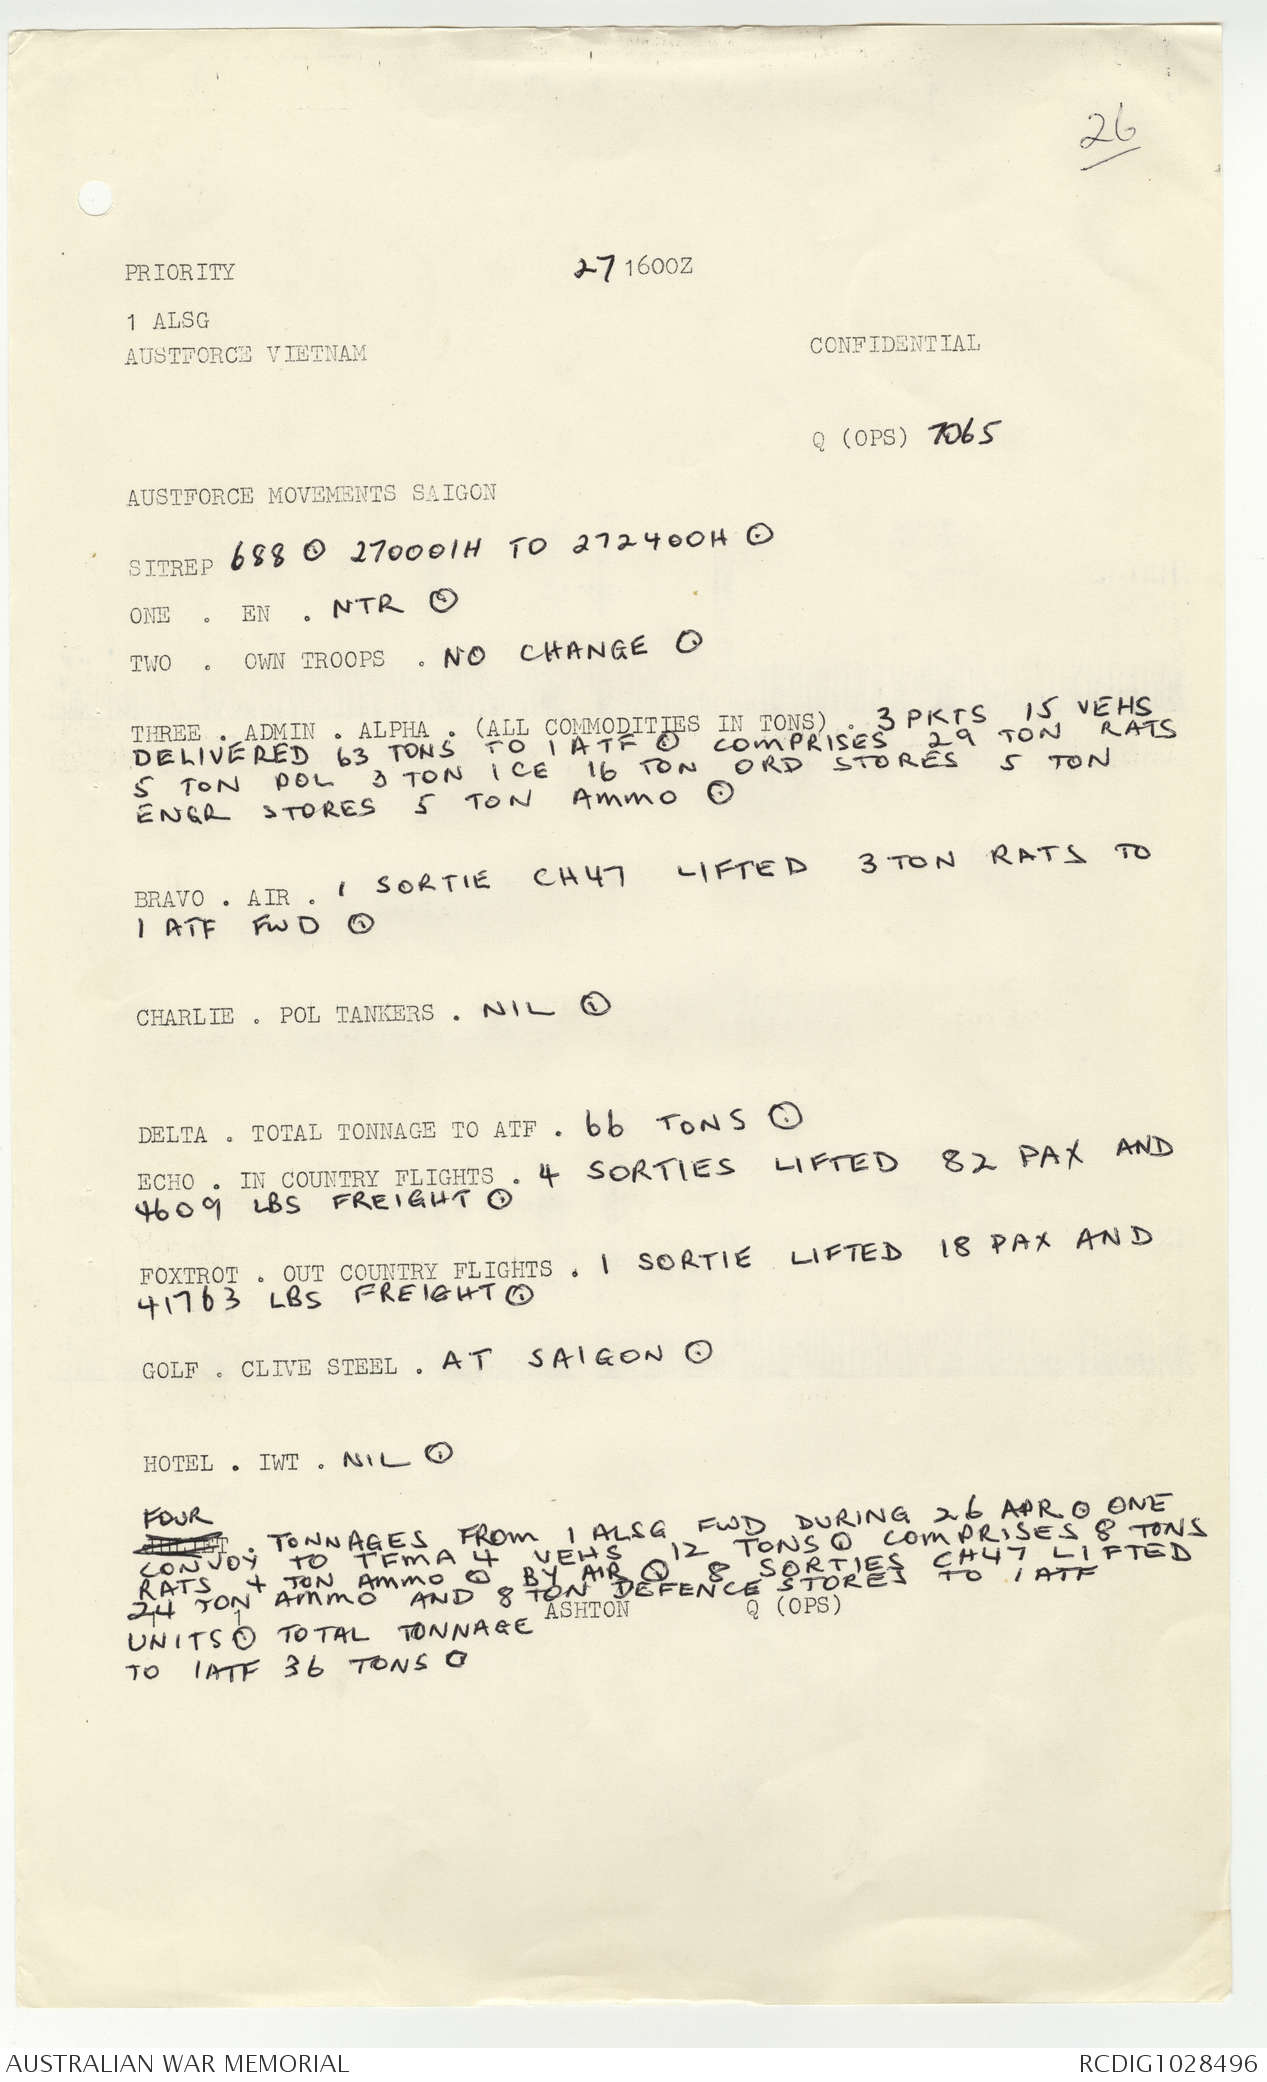 26
PRIORITY 271600Z
1 ALSG
AUSTFORCE VIETNAM
CONFIDENTIAL
Q (OPS) 7065
AUSTFORCE MOVEMENTS SAIGON
SITREP 688 ⊙ 270001H TO 272400H ⊙
ONE . EN . NTR ⊙
TWO . OWN TROOPS . NO CHANGE ⊙
THREE . ADMIN . ALPHA . (ALL COMMODITIES IN TONS) . 3 PKTS 15 VEHS
DELIVERED 63 TONS TO 1 ATF ⊙ COMPRISES 29 TON RATS
5 TON POL 3 TON ICE 16 TON ORD STORES 5 TON
ENGR STORES 5 TON AMMO ⊙
BRAVO . AIR . 1 SORTIE CH47 LIFTED 3 TON RATS TO
1 ATF FWD ⊙
CHARLIE . POL TANKERS . NIL ⊙
DELTA . TOTAL TONNAGE TO ATF . 66 TONS ⊙
ECHO . IN COUNTRY FLIGHTS . 4 SORTIES LIFTED 82 PAX AND
4609 LBS FREIGHT ⊙
FOXTROT . OUT COUNTRY FLIGHTS . 1 SORTIE LIFTED 18 PAX AND
41763 LBS FREIGHT ⊙
GOLF . CLIVE STEEL . AT SAIGON ⊙
HOTEL . IWT . NIL ⊙
FOUR
. TONNAGES FROM 1 ALSG FWD DURING 26 APR ⊙ ONE
CONVOY TO TFMA 4 VEHS 12 TONS ⊙ COMPRISES 8 TONS
RATS 4 TON AMMO ⊙ BY AIR ⊙ 8 SORTIES CH47 LIFTED
24 TON AMMO AND 8 TON DEFENCE STORES TO 1 ATF
ASHTON Q (OPS)
UNITS ⊙ TOTAL TONNAGE
TO 1ATF 36 TONS ⊙
AUSTRALIAN WAR MEMORIAL RCDIG1028496